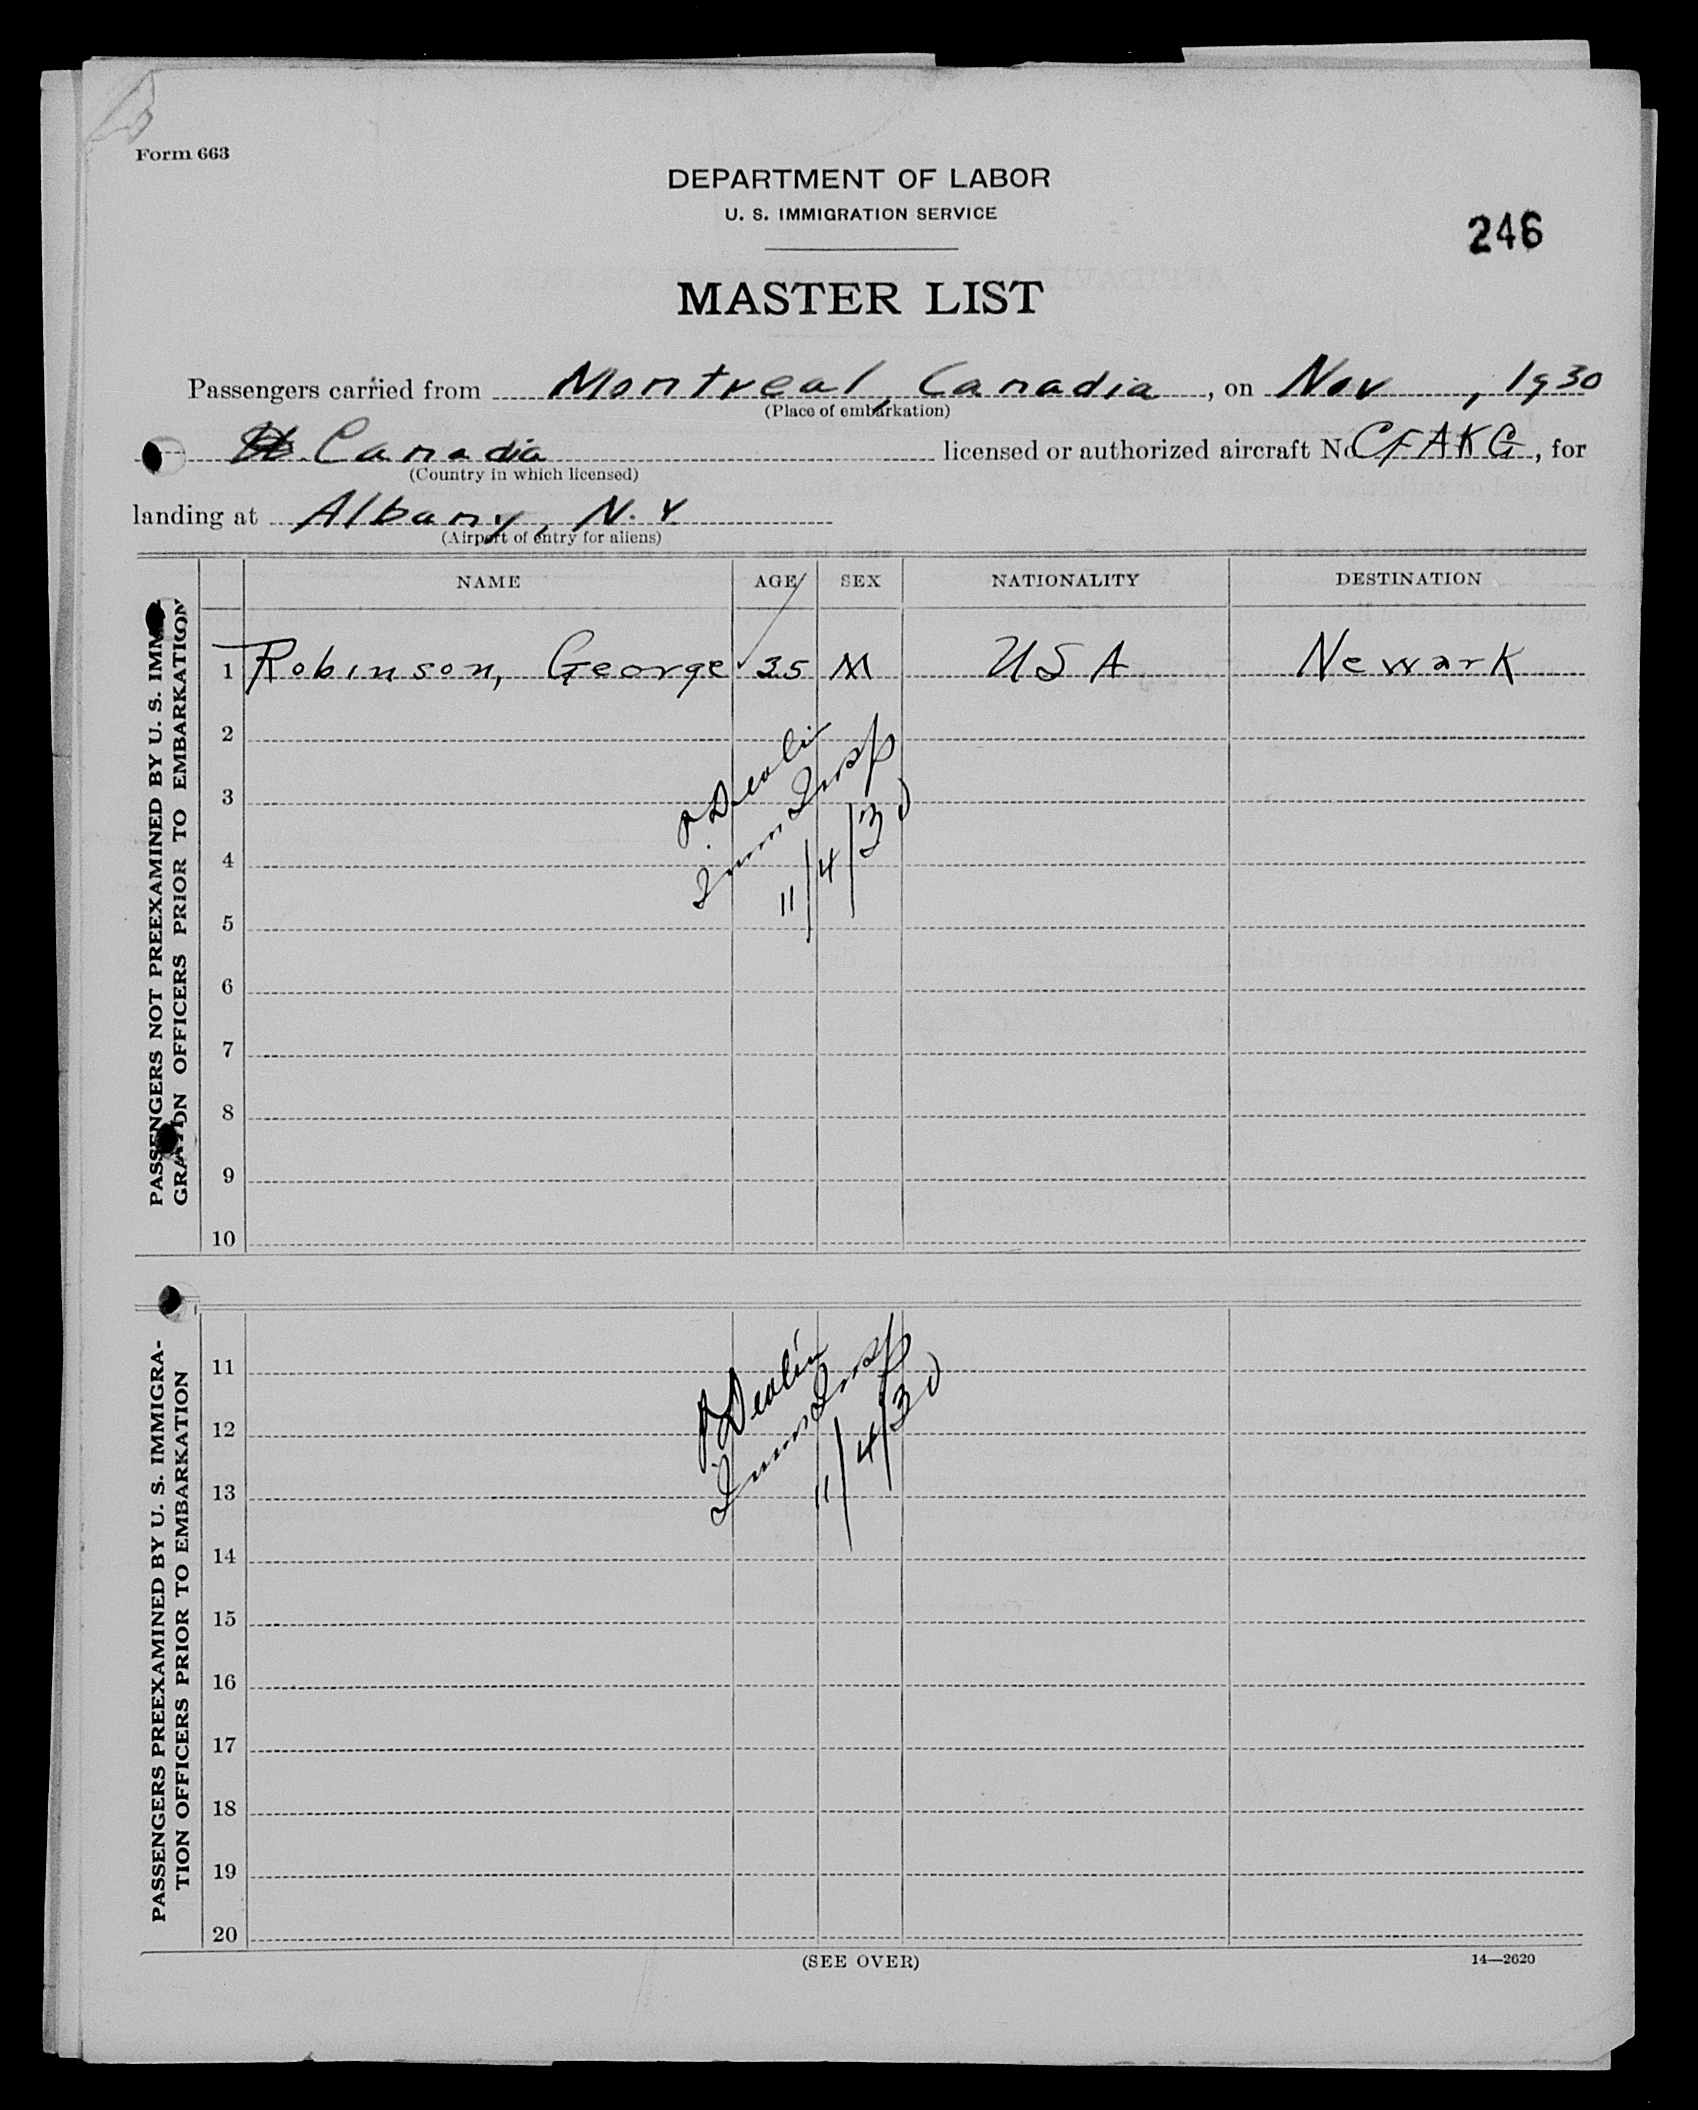 Form 663
DEPARTMENT OF LABOR
U. S. IMMIGRATION SERVICE
246
MASTER LIST
Passengers carried from Montreal, Canadia, on Nov, 1930
(Place of embarkation)
Canadia licensed or authorized aircraft No CFAKG, for
(Country in which licensed)
landing at Albany, N.Y.
(Airport of entry for aliens)
NAME AGE SEX NATIONALITY DESTINATION
PASSENGERS NOT PREEXAMINED BY U. S. IMMI-
GRATION OFFICERS PRIOR TO EMBARKATION
1 Robinson, George 35 M USA Newark
2
3
4
5
6
7
8
9
10
Imm Insp
11/4/30
PASSENGERS PREEXAMINED BY U. S. IMMIGRA-
TION OFFICERS PRIOR TO EMBARKATION
11
12
13
14
15
16
17
18
19
20
Imm Insp
11/4/30
(SEE OVER)
14—2620